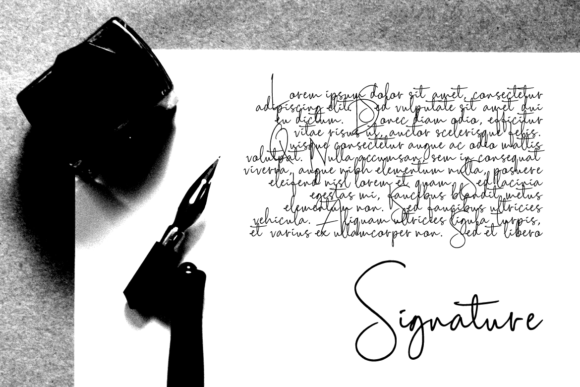 Lorem ipsum dolor sit amet, consectetur
adipiscing elit. Sed vulputate sit amet dui
eu dictum. Donec diam odio, efficitur
vitae risus ut, auctor scelerisque felis.
Quisque consectetur augue ac odio mattis
volutpat. Nulla accumsan, sem in consequat
viverra, augue nibh elementum nulla, posuere
eleifend nisl lorem et quam. Sed lacinia
egestas mi, faucibus blandit metus
elementum non. Sed faucibus ultricies
vehicula. Aliquam ultricies ligula turpis,
et varius ex ullamcorper non. Sed et libero
Signature